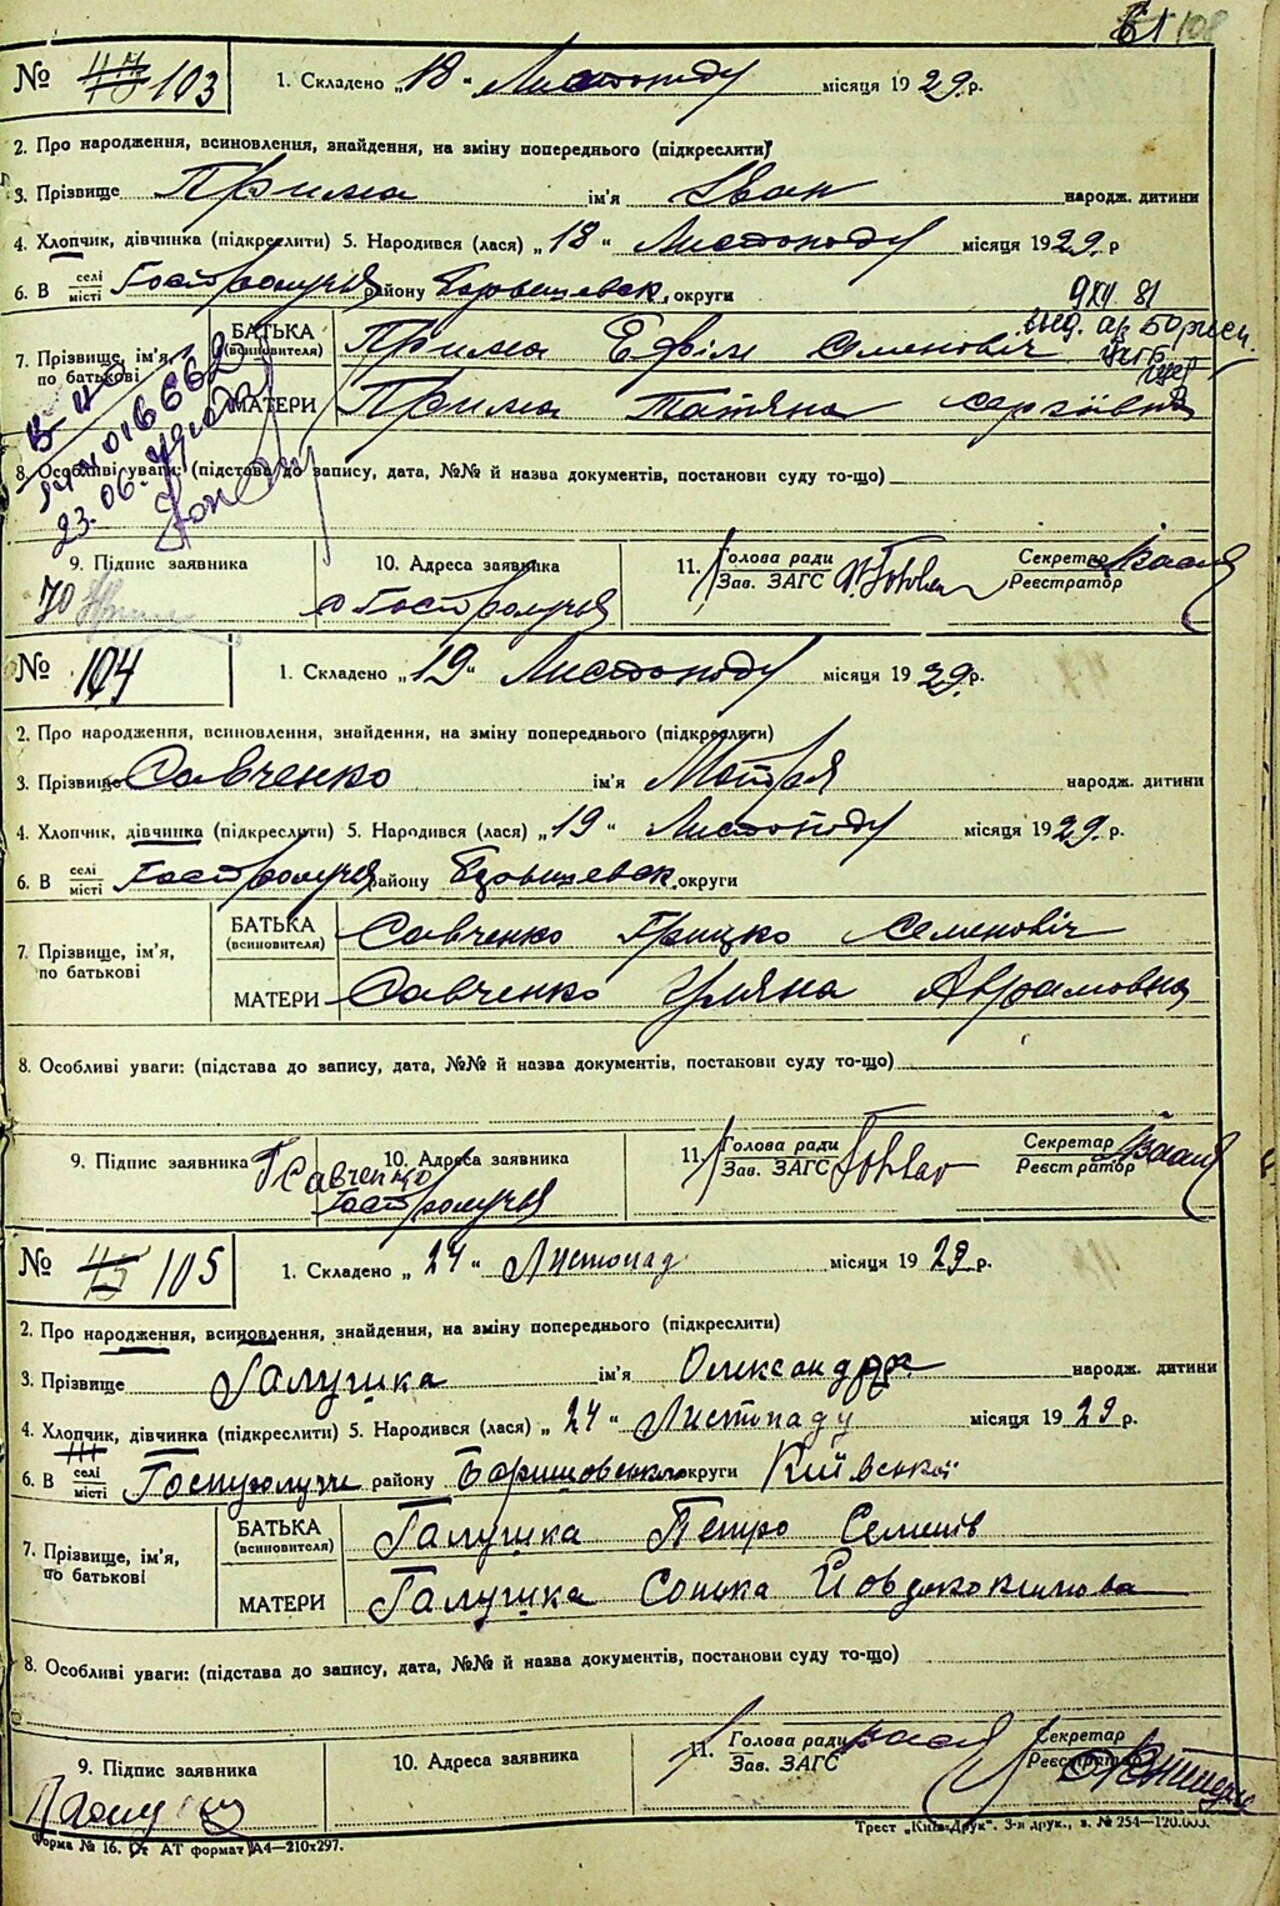 61 108
№ 103 1. Складено „18" Листопаду місяця 1929 р.
2. Про народження, всиновлення, знайдення, на зміну попереднього (підкреслити)
3. Прізвище Прима ім'я Іван народж. дитини
4. Хлопчик, дівчинка (підкреслити) 5. Народився (лася) „18" Листопаду місяця 1929. р
6. В селі/місті Гостролуччя району Боришевск. округи
9 XII 81
7. Прізвище, ім'я, по батькові БАТЬКА (всиновителя) Прима Ефім Семенович
МАТЕРИ Прима Татяна Сергіївна
016662
23.06.
8. Особливі уваги: (підстава до запису, дата, №№ й назва документів, постанови суду то-що)
9. Підпис заявника 10. Адреса заявника 11. Голова ради Секретар
Зав. ЗАГС Реєстратор
с Гостролуччя
№ 104 1. Складено „19" Листопаду місяця 1929. р.
2. Про народження, всиновлення, знайдення, на зміну попереднього (підкреслити)
3. Прізвище Савченко ім'я Мотря народж. дитини
4. Хлопчик, дівчинка (підкреслити) 5. Народився (лася) „19" Листопаду місяця 1929. р.
6. В селі/місті Гостролуччя району округи
7. Прізвище, ім'я, по батькові БАТЬКА (всиновителя) Савченко Грицко Семеновіч
МАТЕРИ Савченко Уляна Аврамовна
8. Особливі уваги: (підстава до запису, дата, №№ й назва документів, постанови суду то-що)
9. Підпис заявника Г Савченко 10. Адреса заявника 11. Голова ради Секретар
Зав. ЗАГС Реєстратор
Гостролуччя
№ 45 105 1. Складено „24" Листопад місяця 1929 р.
2. Про народження, всиновлення, знайдення, на зміну попереднього (підкреслити)
3. Прізвище Галушка ім'я Олександра народж. дитини
4. Хлопчик, дівчинка (підкреслити) 5. Народився (лася) „24" Листопаду місяця 1929 р.
6. В селі/місті Гостролуччи району Боришовсько округи Київської
7. Прізвище, ім'я, по батькові БАТЬКА (всиновителя) Галушка Петро Семенів
МАТЕРИ Галушка Сонька Йовдокимова
8. Особливі уваги: (підстава до запису, дата, №№ й назва документів, постанови суду то-що)
9. Підпис заявника 10. Адреса заявника 11. Голова ради Секретар
Зав. ЗАГС Реєстратор
Форма № 16. Ст АТ формат А4—210x297.
Трест „Київ-Друк". 3-я друк., з. № 254—120.000.